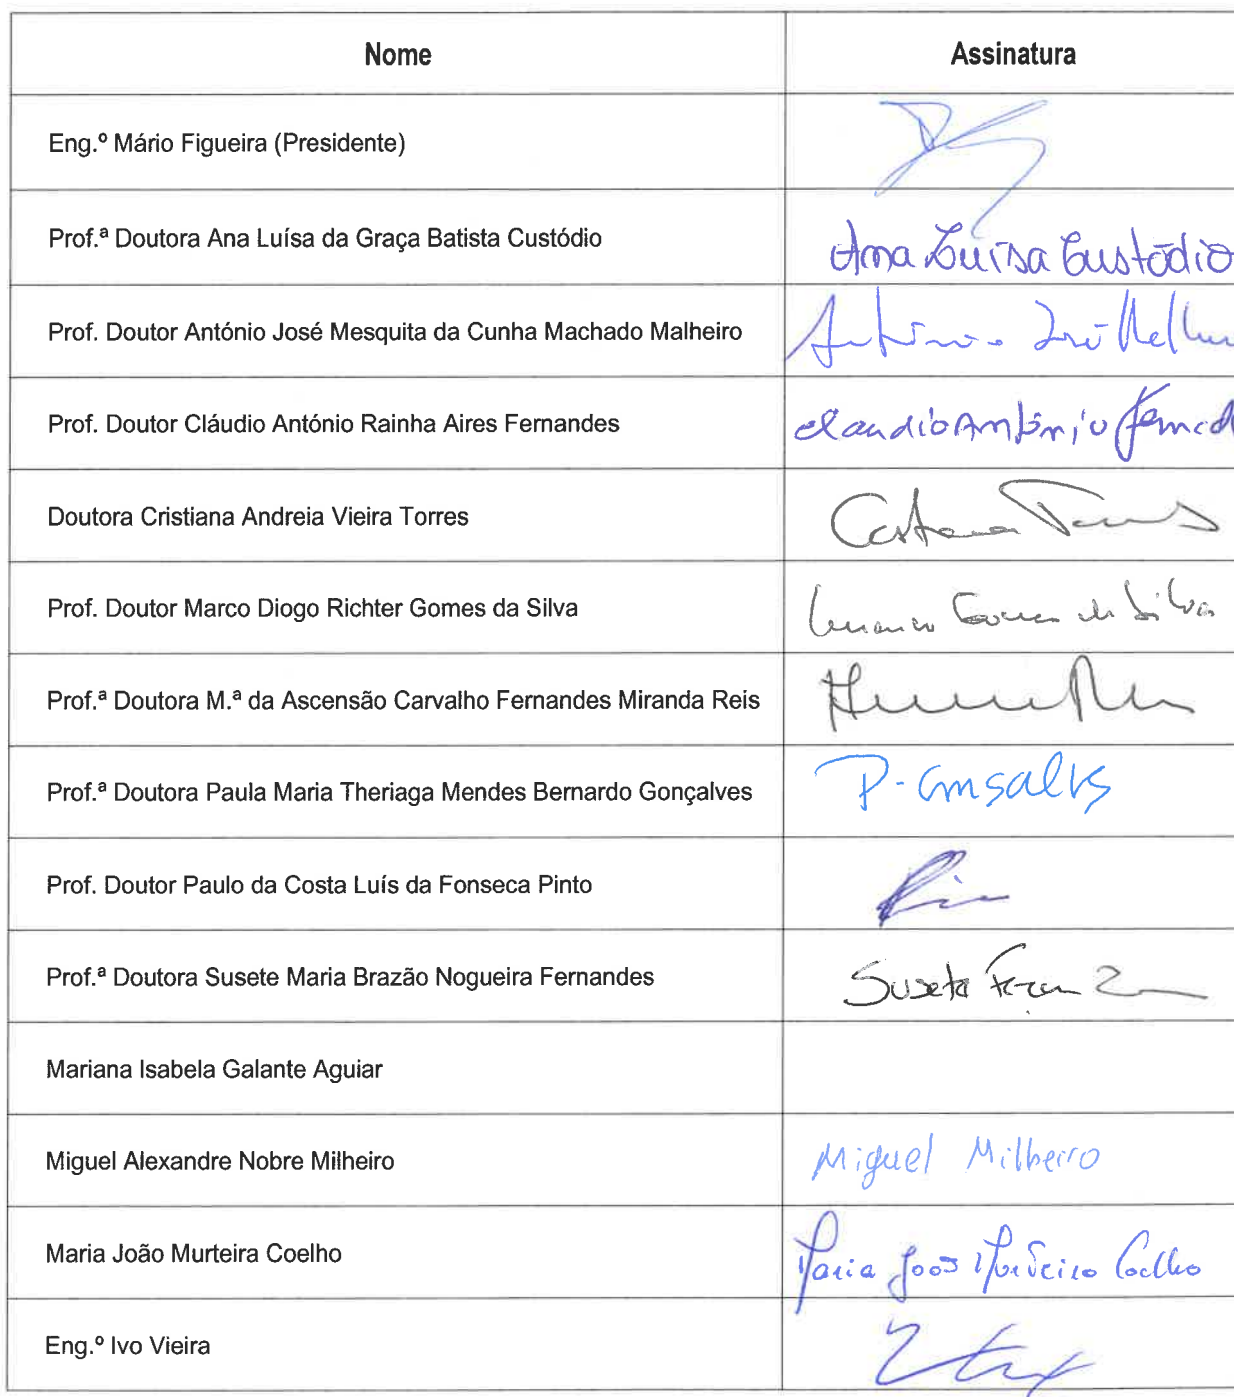 Nome Assinatura
Eng.º Mário Figueira (Presidente)
Prof.ª Doutora Ana Luísa da Graça Batista Custódio Ana Luísa Custódio
Prof. Doutor António José Mesquita da Cunha Machado Malheiro António José
Prof. Doutor Cláudio António Rainha Aires Fernandes Claudio António
Doutora Cristiana Andreia Vieira Torres
Prof. Doutor Marco Diogo Richter Gomes da Silva Marco Gomes da Silva
Prof.ª Doutora M.ª da Ascensão Carvalho Fernandes Miranda Reis
Prof.ª Doutora Paula Maria Theriaga Mendes Bernardo Gonçalves P. Gonsalvs
Prof. Doutor Paulo da Costa Luís da Fonseca Pinto
Prof.ª Doutora Susete Maria Brazão Nogueira Fernandes Susete
Mariana Isabela Galante Aguiar
Miguel Alexandre Nobre Milheiro Miguel Milheiro
Maria João Murteira Coelho Maria João Murteira Coelho
Eng.º Ivo Vieira